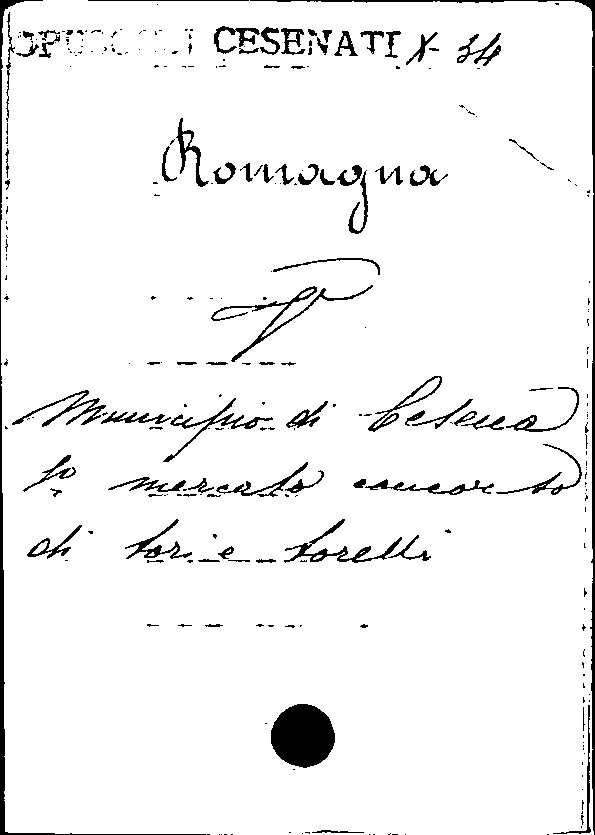 OPUSCOLI CESENATI X-34
Romagna
Municipio di Cesena
1º mercato concorso
di tori e torelli